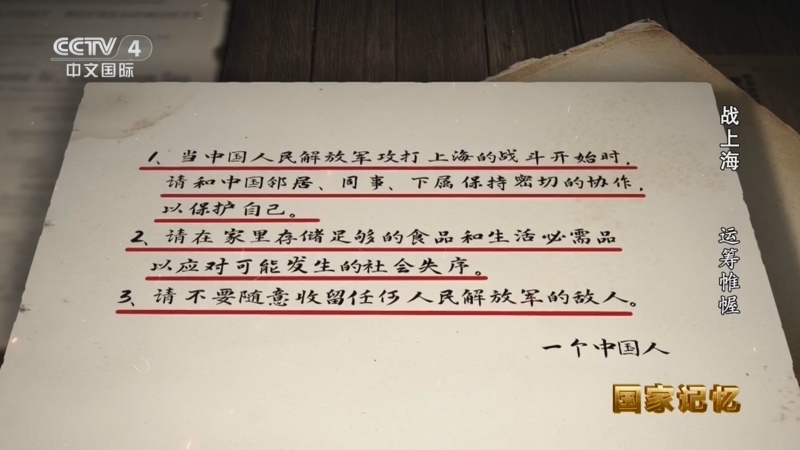 CCTV 4
中文国际
1、当中国人民解放军攻打上海的战斗开始时，
请和中国邻居、同事、下属保持密切的协作，
以保护自己。
2、请在家里存储足够的食品和生活必需品
以应对可能发生的社会失序。
3、请不要随意收留任何人民解放军的敌人。
一个中国人
战上海 运筹帷幄
国家记忆